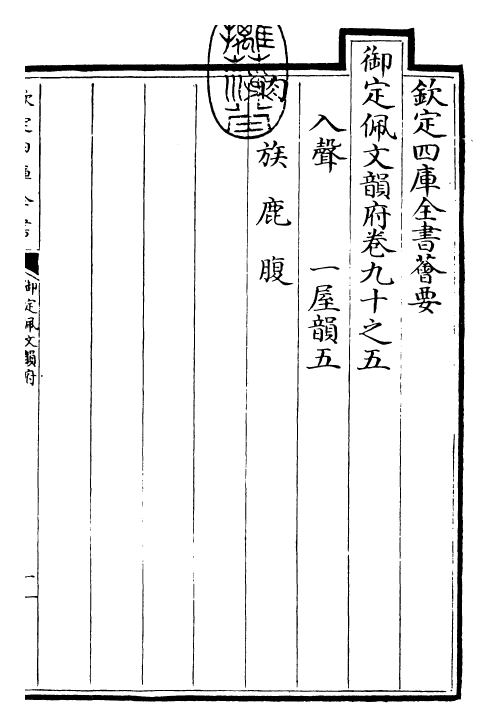 欽定四庫全書薈要
御定佩文韻府卷九十之五
入聲　一屋韻五
肉族鹿腹
欽定四庫全書
御定佩文韻府